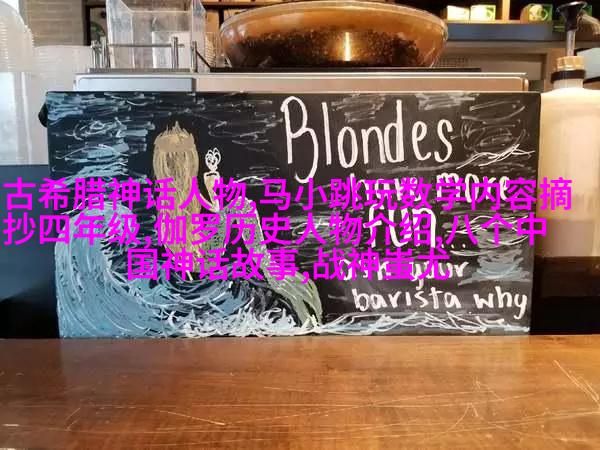 Blondes
have more
古希腊神话人物,马小跳玩数学内容摘
FUN
抄四年级,伽罗历史人物介绍,八个中
国神话故事,战神蚩尤
your
barista why